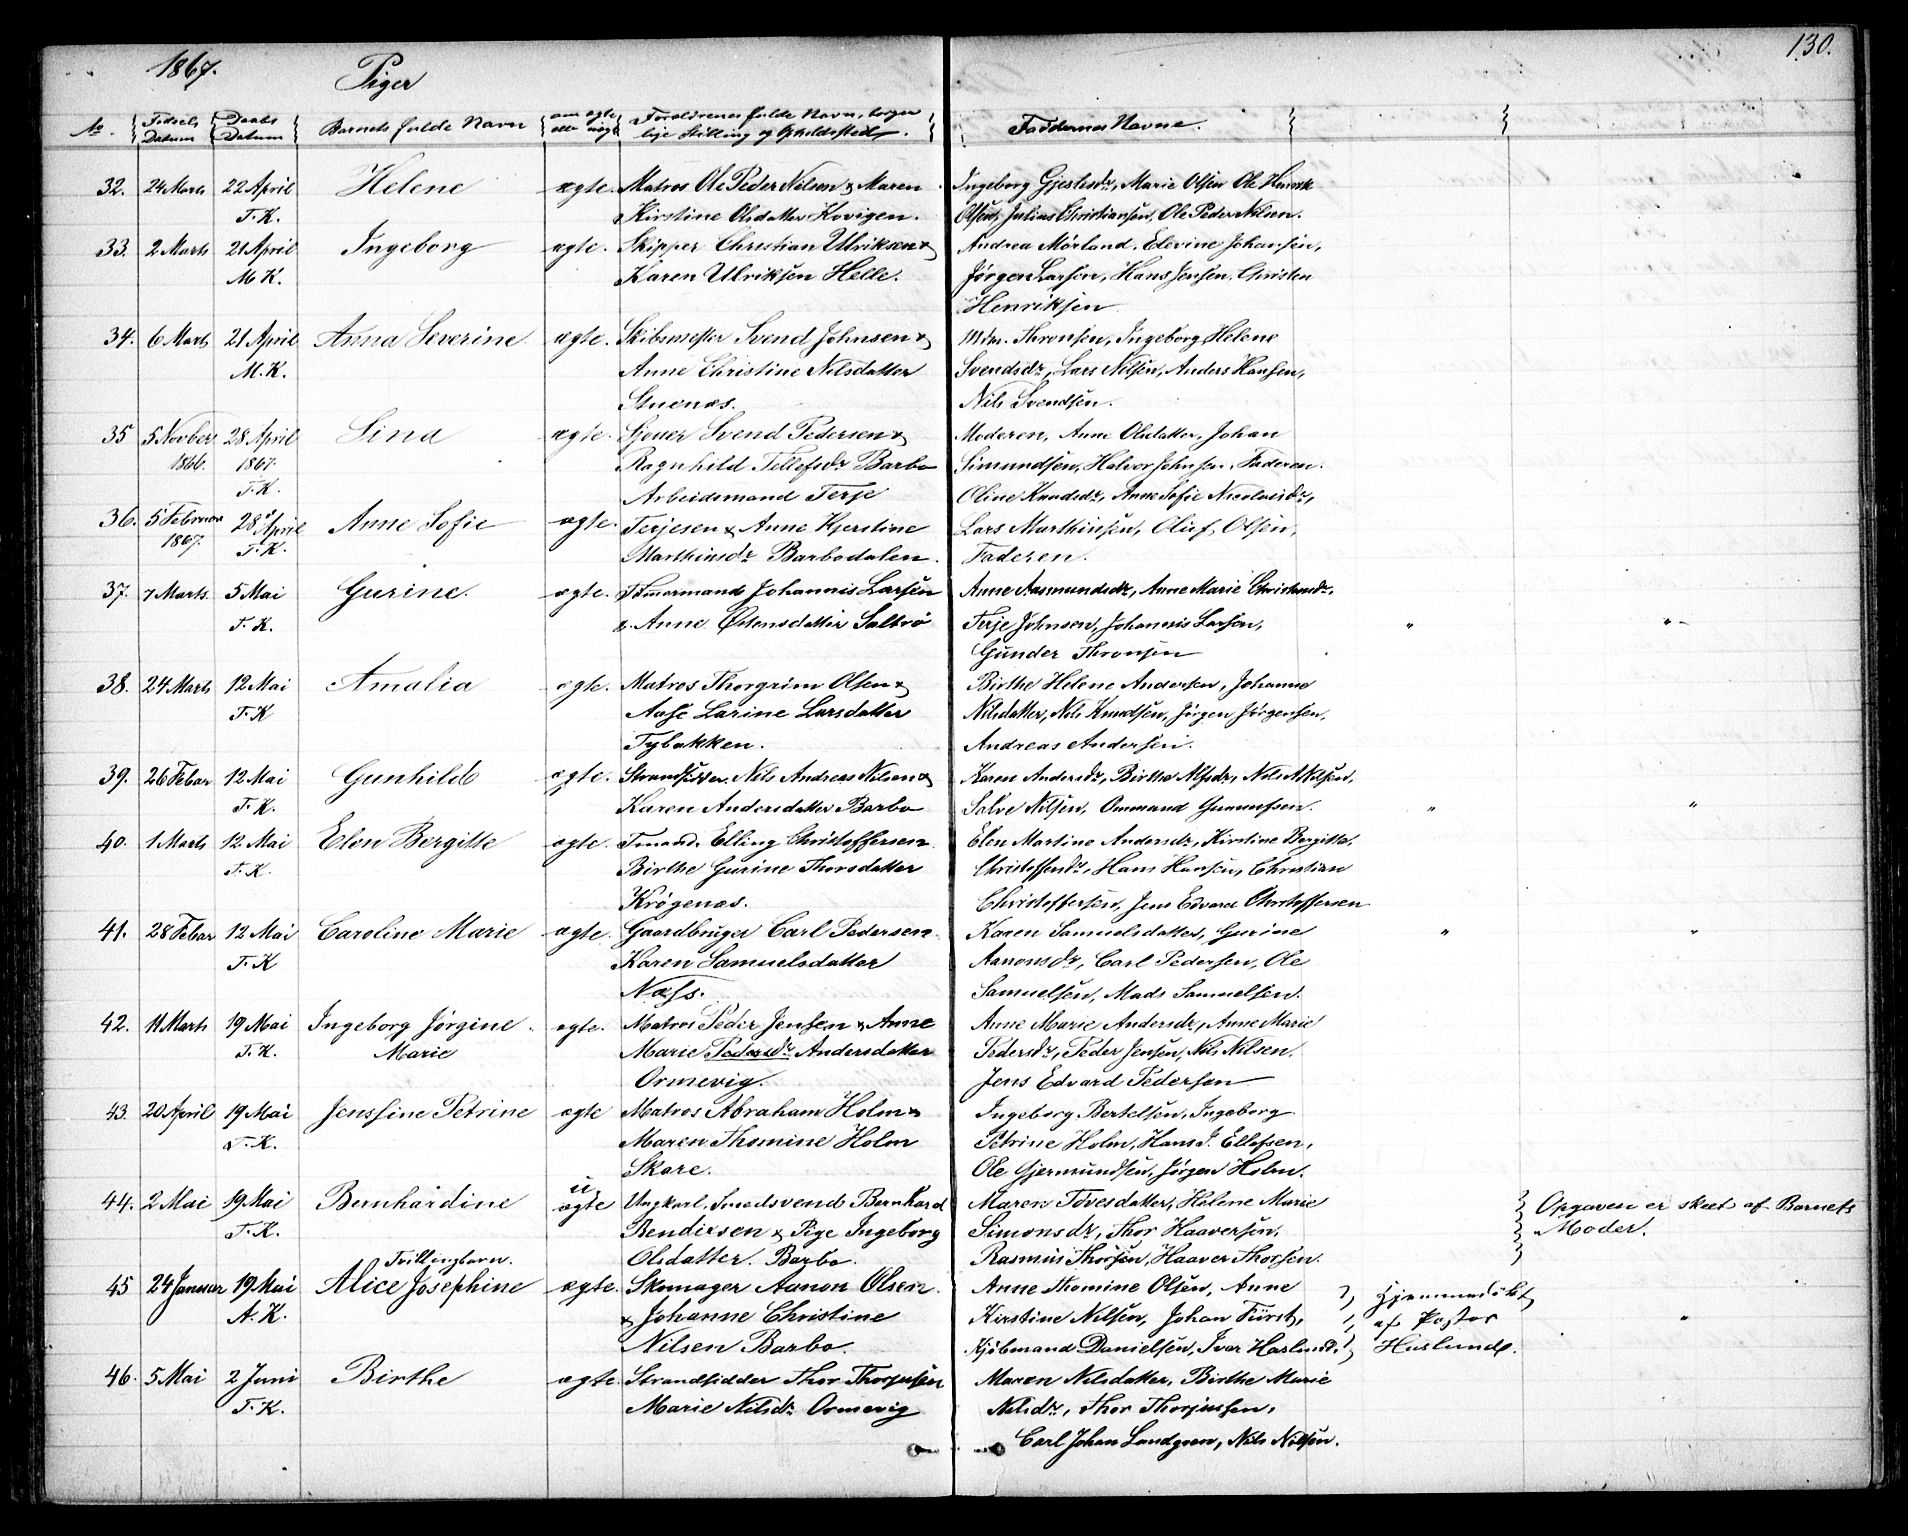 1867. Piger 130.
No. Fødsels Datum Daabs Datum Barnets fulde Navn om ægte eller uægte Forældrenes fulde Navn, borgerlige Stilling og Opholdssted. Faddernes Navne.
32. 24 Marts 22 April Helene ægte. Matros Ole Peder Nilsen & Maren Ingeborg Gjestsdr, Marie Olsen Ole Henrik
T. K. Kirstine Olsdatter Kovigen. Olsen, Julius Christiansen, Ole Peder Nilsen.
33. 2 Marts 21 April Ingeborg ægte. Skipper Christian Ulriksen & Andrea Mørland, Edevine Johansen,
M K. Karen Ulriksen Helle. Jørgen Larsen, Hans Jensen, Christen
Henriksen
34. 6 Marts 21 April Anna Severine ægte. Skibsmester Svend Johnsen & Mdm. Thronsen, Ingeborg Helene
M. K. Anne Christine Nilsdatter Svendsdr, Lars Nilsen, Anders Hansen,
Stuenæs. Nils Svendsen.
35 5 Novber 28 April Sina ægte. Sjouer Svend Pedersen & Moderen, Anne Olsdatter, Johan
1866. 1867. Ragnhild Tellefsdr Barbo Simundsen, Halvor Johnsen, Faderen.
T. K. Arbeidsmand Terje Oline Knudsdr, Anne Sofie Nicolaisdr,
36. 5 Februar 28 April Anne Sofie ægte. Terjesen & Anne Kjerstine Lars Marthinsen, Oluf Olsen,
1867. T. K. Marthinsdr Barbodalen. Faderen.
37. 7 Marts. 5 Mai Gurine. ægte. Tømmermand Johannis Larsen Anne Aasmundsdr, Anne Marie Christensdr,
T. K. & Anne Østensdatter Saltrø Terje Johnsen, Johannis Larsen, " "
Gunder Thronsen
38. 24 Marts 12 Mai Amalia ægte. Matros Thorgrim Olsen & Birthe Helene Andersen, Johanne
T. K Aase Larine Larsdatter Nilsdatter, Nils Knudsen, Jørgen Jørgensen,
Tybakken. Andreas Andersen.
39. 26 Febar 12 Mai Gunhild ægte. Strandsidder. Nils Andreas Nilsen & Karen Andersdr, Birthe Alfsdr, Nils Nilsen,
T. K. Karen Andersdatter Barbo Salve Nilsen, Ommund Gunnufsen. " "
40. 1 Marts 12. Mai Elen Bergitte ægte. Tmand. Elling Christoffersen Elen Martine Andersdr, Kirstine Bergitte,
T. K. Birthe Gurine Thorsdatter Christoffersdr, Hans Hansen, Christian
Krøgenæs. Christoffersen, Jens Edvard Christoffersen
41. 28 Febar 12 Mai Caroline Marie ægte. Gaardbruger Carl Pedersen Karen Samuelsdatter, Gurine " "
T. K Karen Samuelsdatter Aanonsdr, Carl Pedersen, Ole
Næss. Samuelsen, Mads Samuelsen.
42. 11 Marts 19 Mai Ingeborg Jørgine ægte. Matros Peder Jensen & Anne Anne Marie Andersdr, Anne Marie
T. K. Marie Marie Pedersdr Andersdatter Pedersdr, Peder Jensen, Nils Nilsen.
Ormevig. Jens Edvard Pedersen
43. 20 April 19 Mai Jenssine Petrine ægte Matros Abraham Holm & Ingeborg Bertelsen, Ingeborg
T. K. Maren Thomine Holm Petrine Holm, Hans J. Ellefsen,
Skare. Ole Gjermundsen, Jørgen Holm.
44. 2 Mai 19 Mai Bernhardine uægte Ungkarl, Smedsvend Bernhard Maren Tovesdatter, Helene Marie Opgaven er skeet af Barnets
T. K. Bendixsen & Pige Ingeborg Simonsdr, Thor Haaversen, Moder.
Tvillingbarn. Olsdatter. Barbo. Rasmus Thorsen, Haaver Thorsen.
45 24 Januar 19 Mai Alice Josephine ægte. Skomager Aanon Olsen Anne Thomine Olsen, Anne Hjemmedøbt
A. K. & Johanne Christine Kirstine Nilsen, Johan Fürst, af Pastor "
Nilsen Barbo. Kjøbmand Danielsen, Iver Haslund. Haslund.
46. 5 Mai 2 Juni Birthe ægte. Strandsidder Thor Thorjussen Maren Nilsdatter, Birthe Marie
T. K. Marie Nilsdr Ormevig Nilsdr, Thor Thorjussen,
Carl Johan Landgren, Nils Nilsen.